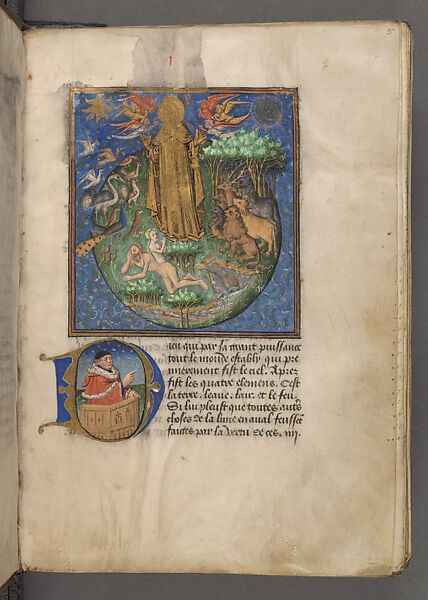 Dieu qui par sa grant puissance
tout le monde establÿ qui pre
mierement fist le ciel. Aprez
fist les quatre elemens. Cest
la terre, leaue, lair, et le feu.
Si lui pleust que toutes autres
choses de la lune en aual feussēt
faittes par la vertu de ces .iiij.